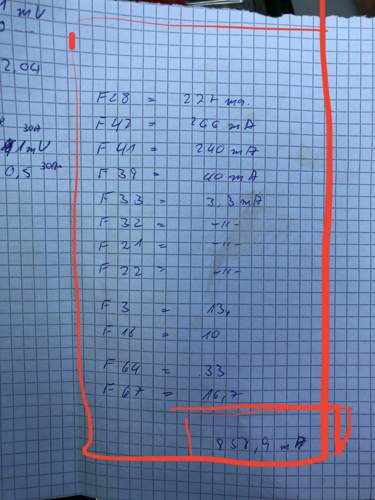 1 mV
2,04
30A
1mV
0,5 30A
F28 = 227 ma.
F42 = 266 mA
F41 = 240 mA
F39 = 40 mA
F33 = 3,3 mA
F32 = -"-
F21 = -"-
F22 = -"-
F3 = 13,
F18 = 10
F64 = 33
F67 = 16,7
858,9 mA